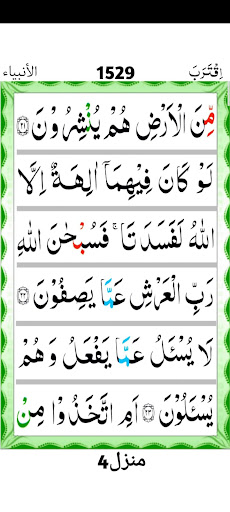 الأنبياء 1529 اِقْتَرَبَ
مِّنَ الْاَرْضِ هُمْ يُنْشِرُوْنَ ﴿۲۱﴾
لَوْ كَانَ فِيْهِمَاۤ اٰلِهَةٌ اِلَّا
اللّٰهُ لَفَسَدَتَا ۚ فَسُبْحٰنَ اللّٰهِ
رَبِّ الْعَرْشِ عَمَّا يَصِفُوْنَ ﴿۲۲﴾
لَا يُسْـَٔلُ عَمَّا يَفْعَلُ وَ هُمْ
يُسْـَٔلُوْنَ ﴿۲۳﴾ اَمِ اتَّخَذُوْا مِنْ
منزل4